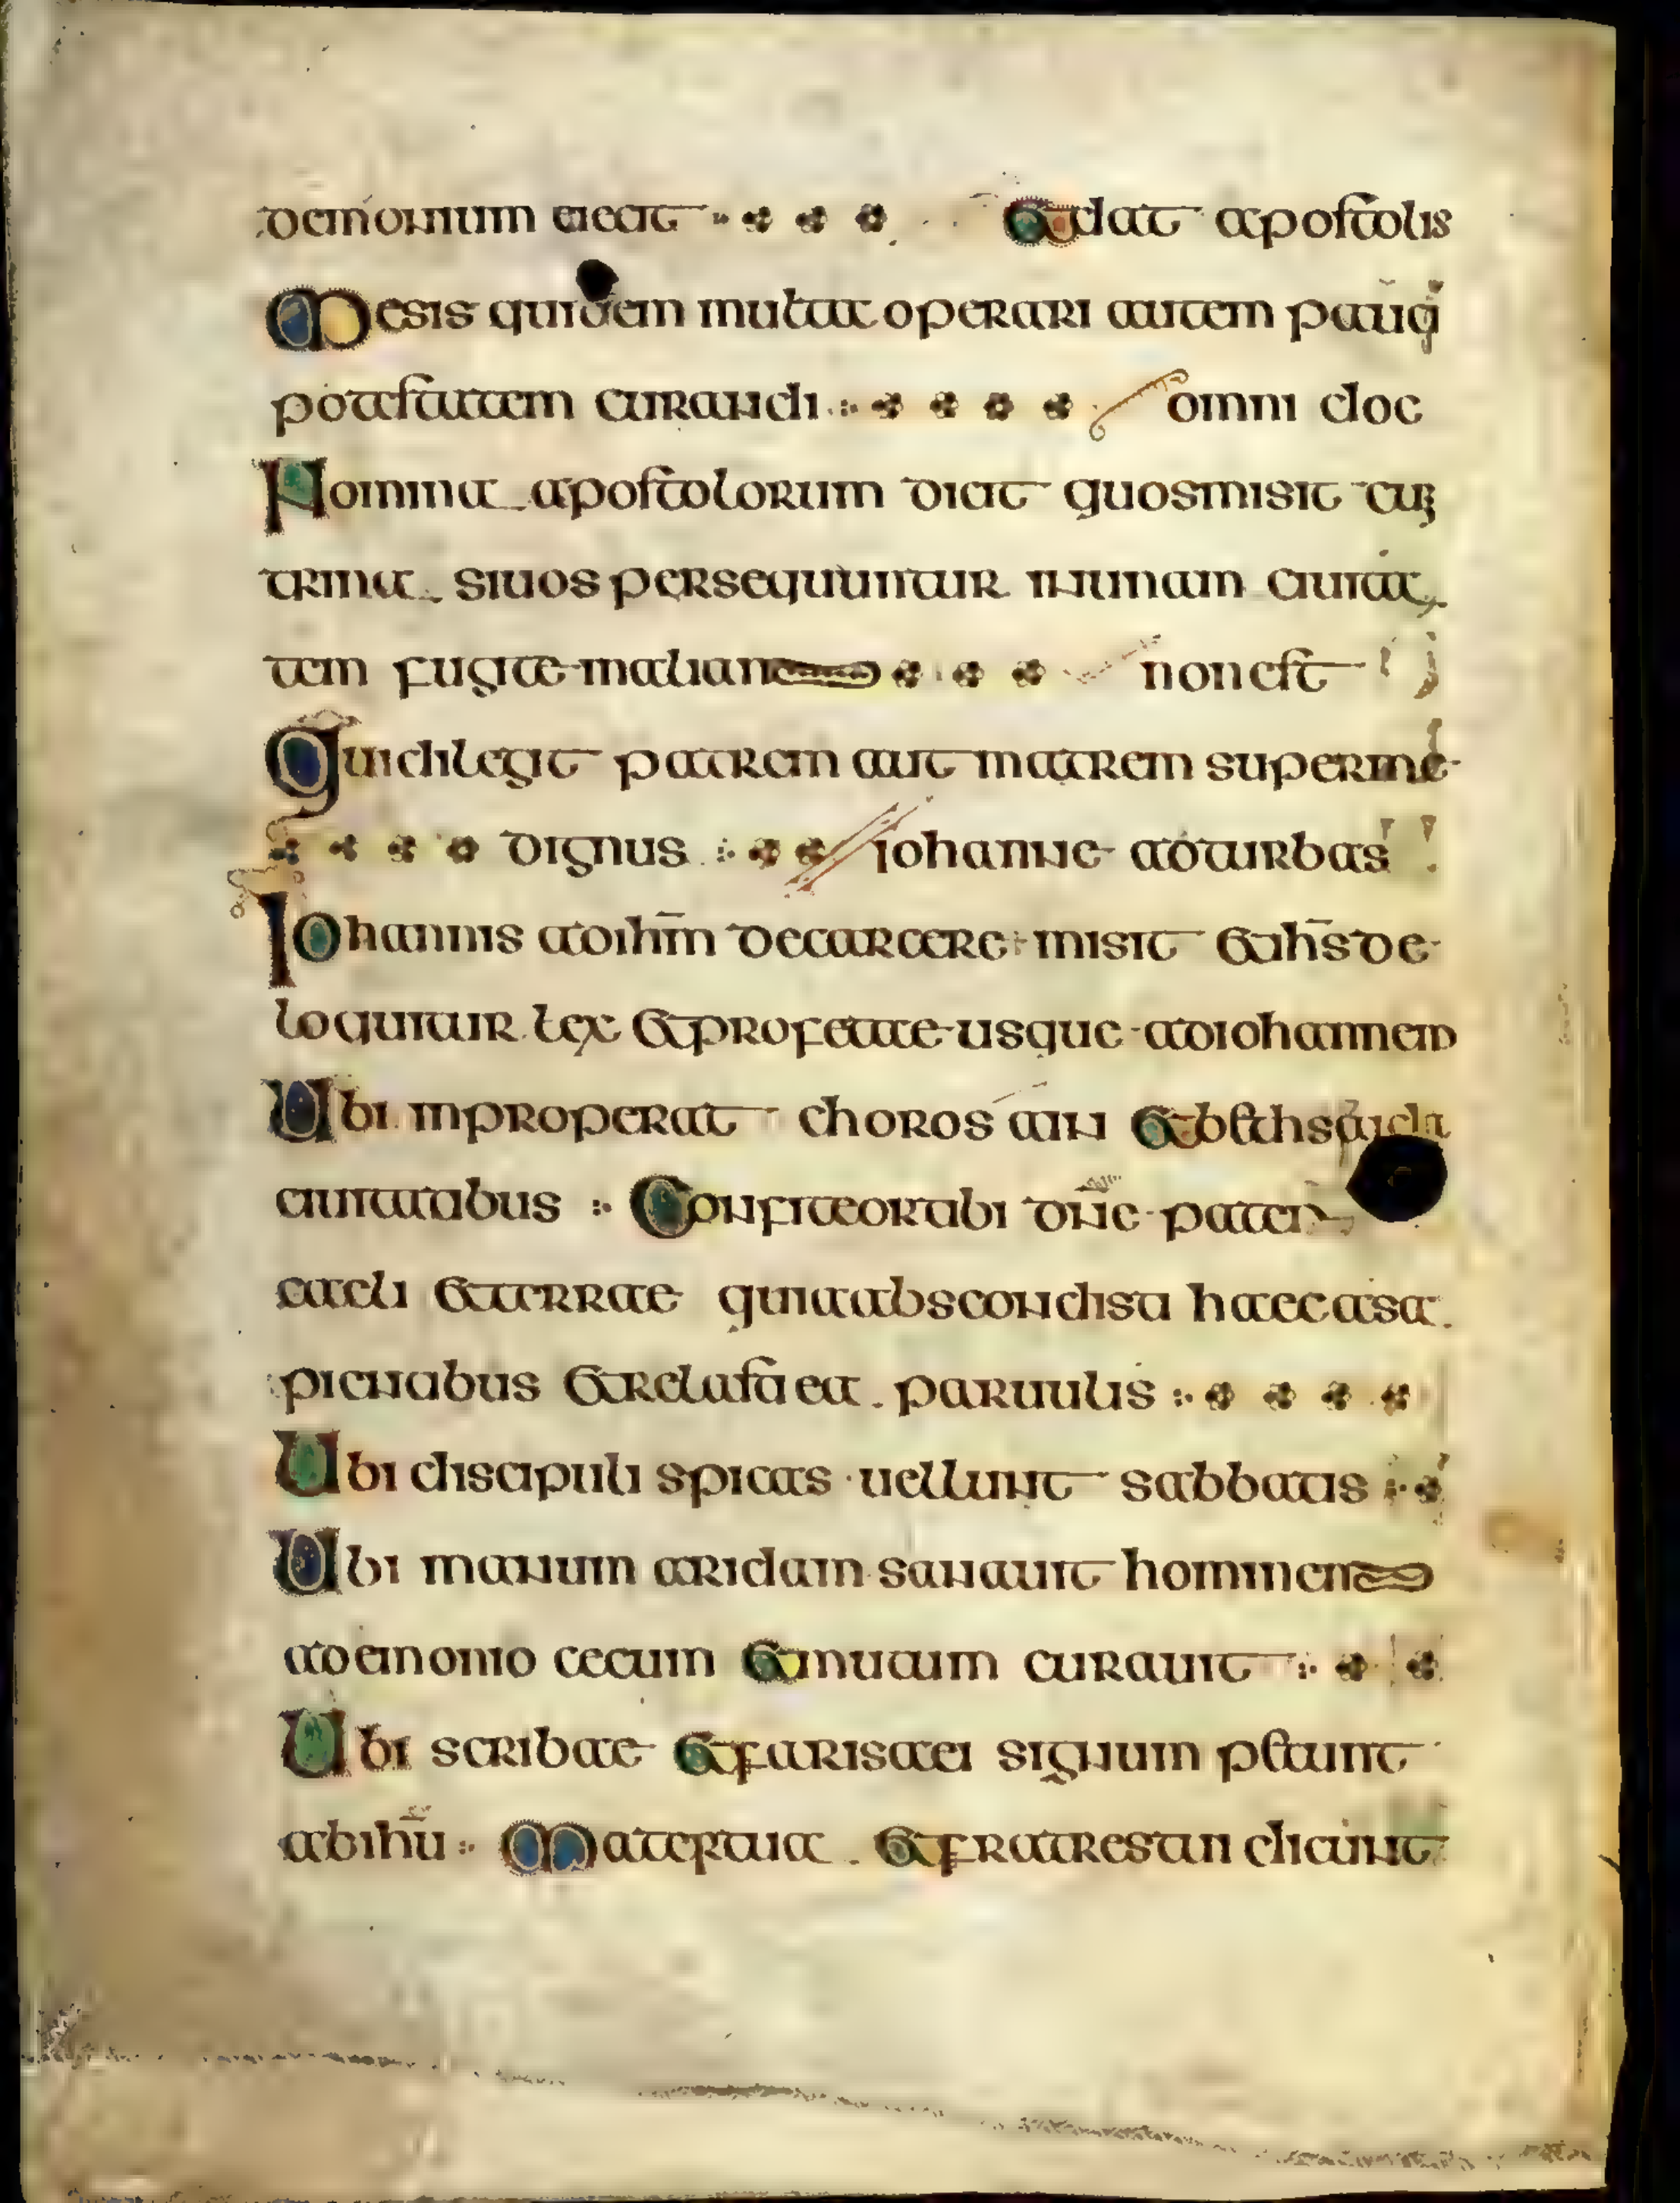 demonium eiecit et dat apostolis
Mesis quidem multa operari autem pauci
potestatem curandi omni doc
Nomina apostolorum dicit quos misit cu;
trina si uos persequuntur in unam ciuita
tem fugite in aliam non est
Qui diligit patrem aut matrem super me
dignus iohanne ad turbas
Iohannis ad ihm̄ de carcere misit et ih̄s de
loquitur lex et profetae usque ad iohannem
Ubi inproperat chorozain et bethsaida
ciuitatibus : Confiteor tibi dn̄e pater
caeli et terrae quia abscondisti haec a sa
pientibus et relasti ea paruulis :
Ubi discipuli spicas uellunt sabbatis :
Ubi manum aridam sanauit hominem
a demonio cecum et mutum curauit :
Ubi scribae et farisaei signum petunt
ab ihū : Mater tua et fratres tui dicunt